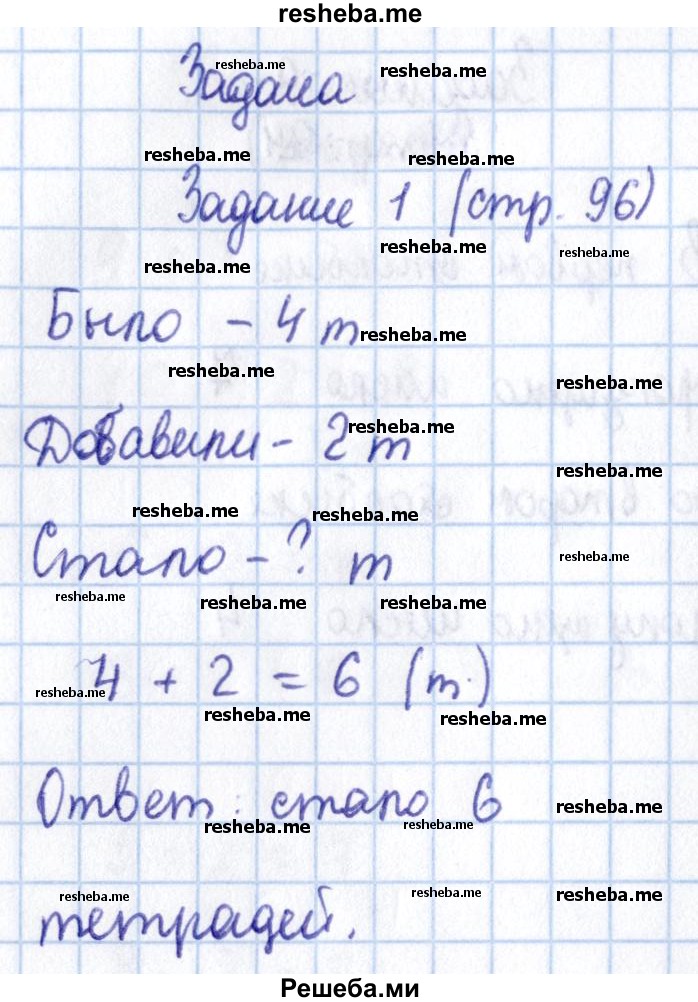 resheba.me
resheba.me
Задача
resheba.me
resheba.me
resheba.me
Задание 1 (стр. 96)
resheba.me
resheba.me
resheba.me
Было – 4 т
resheba.me
resheba.me
resheba.me
Добавили – 2 т
resheba.me
resheba.me
resheba.me
resheba.me
Стало – ? т
resheba.me
resheba.me
resheba.me
resheba.me
4 + 2 = 6 (т.)
resheba.me
resheba.me
resheba.me
Ответ: стало 6
resheba.me
resheba.me
resheba.me
resheba.me
resheba.me
resheba.me
тетрадей.
Решеба.ми